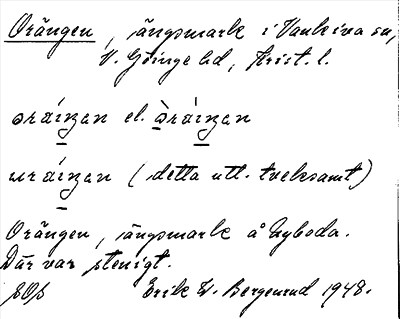 Orängen, ängsmark i Vankiva sn,
V. Göinge hd, Krist. l.
əráiŋən el. ə̀ráiŋən
uráiŋən (detta utt. tveksamt)
Orängen, ängsmark å Nyboda.
Där var stenigt.
Erik W. Bergenrud 1948.